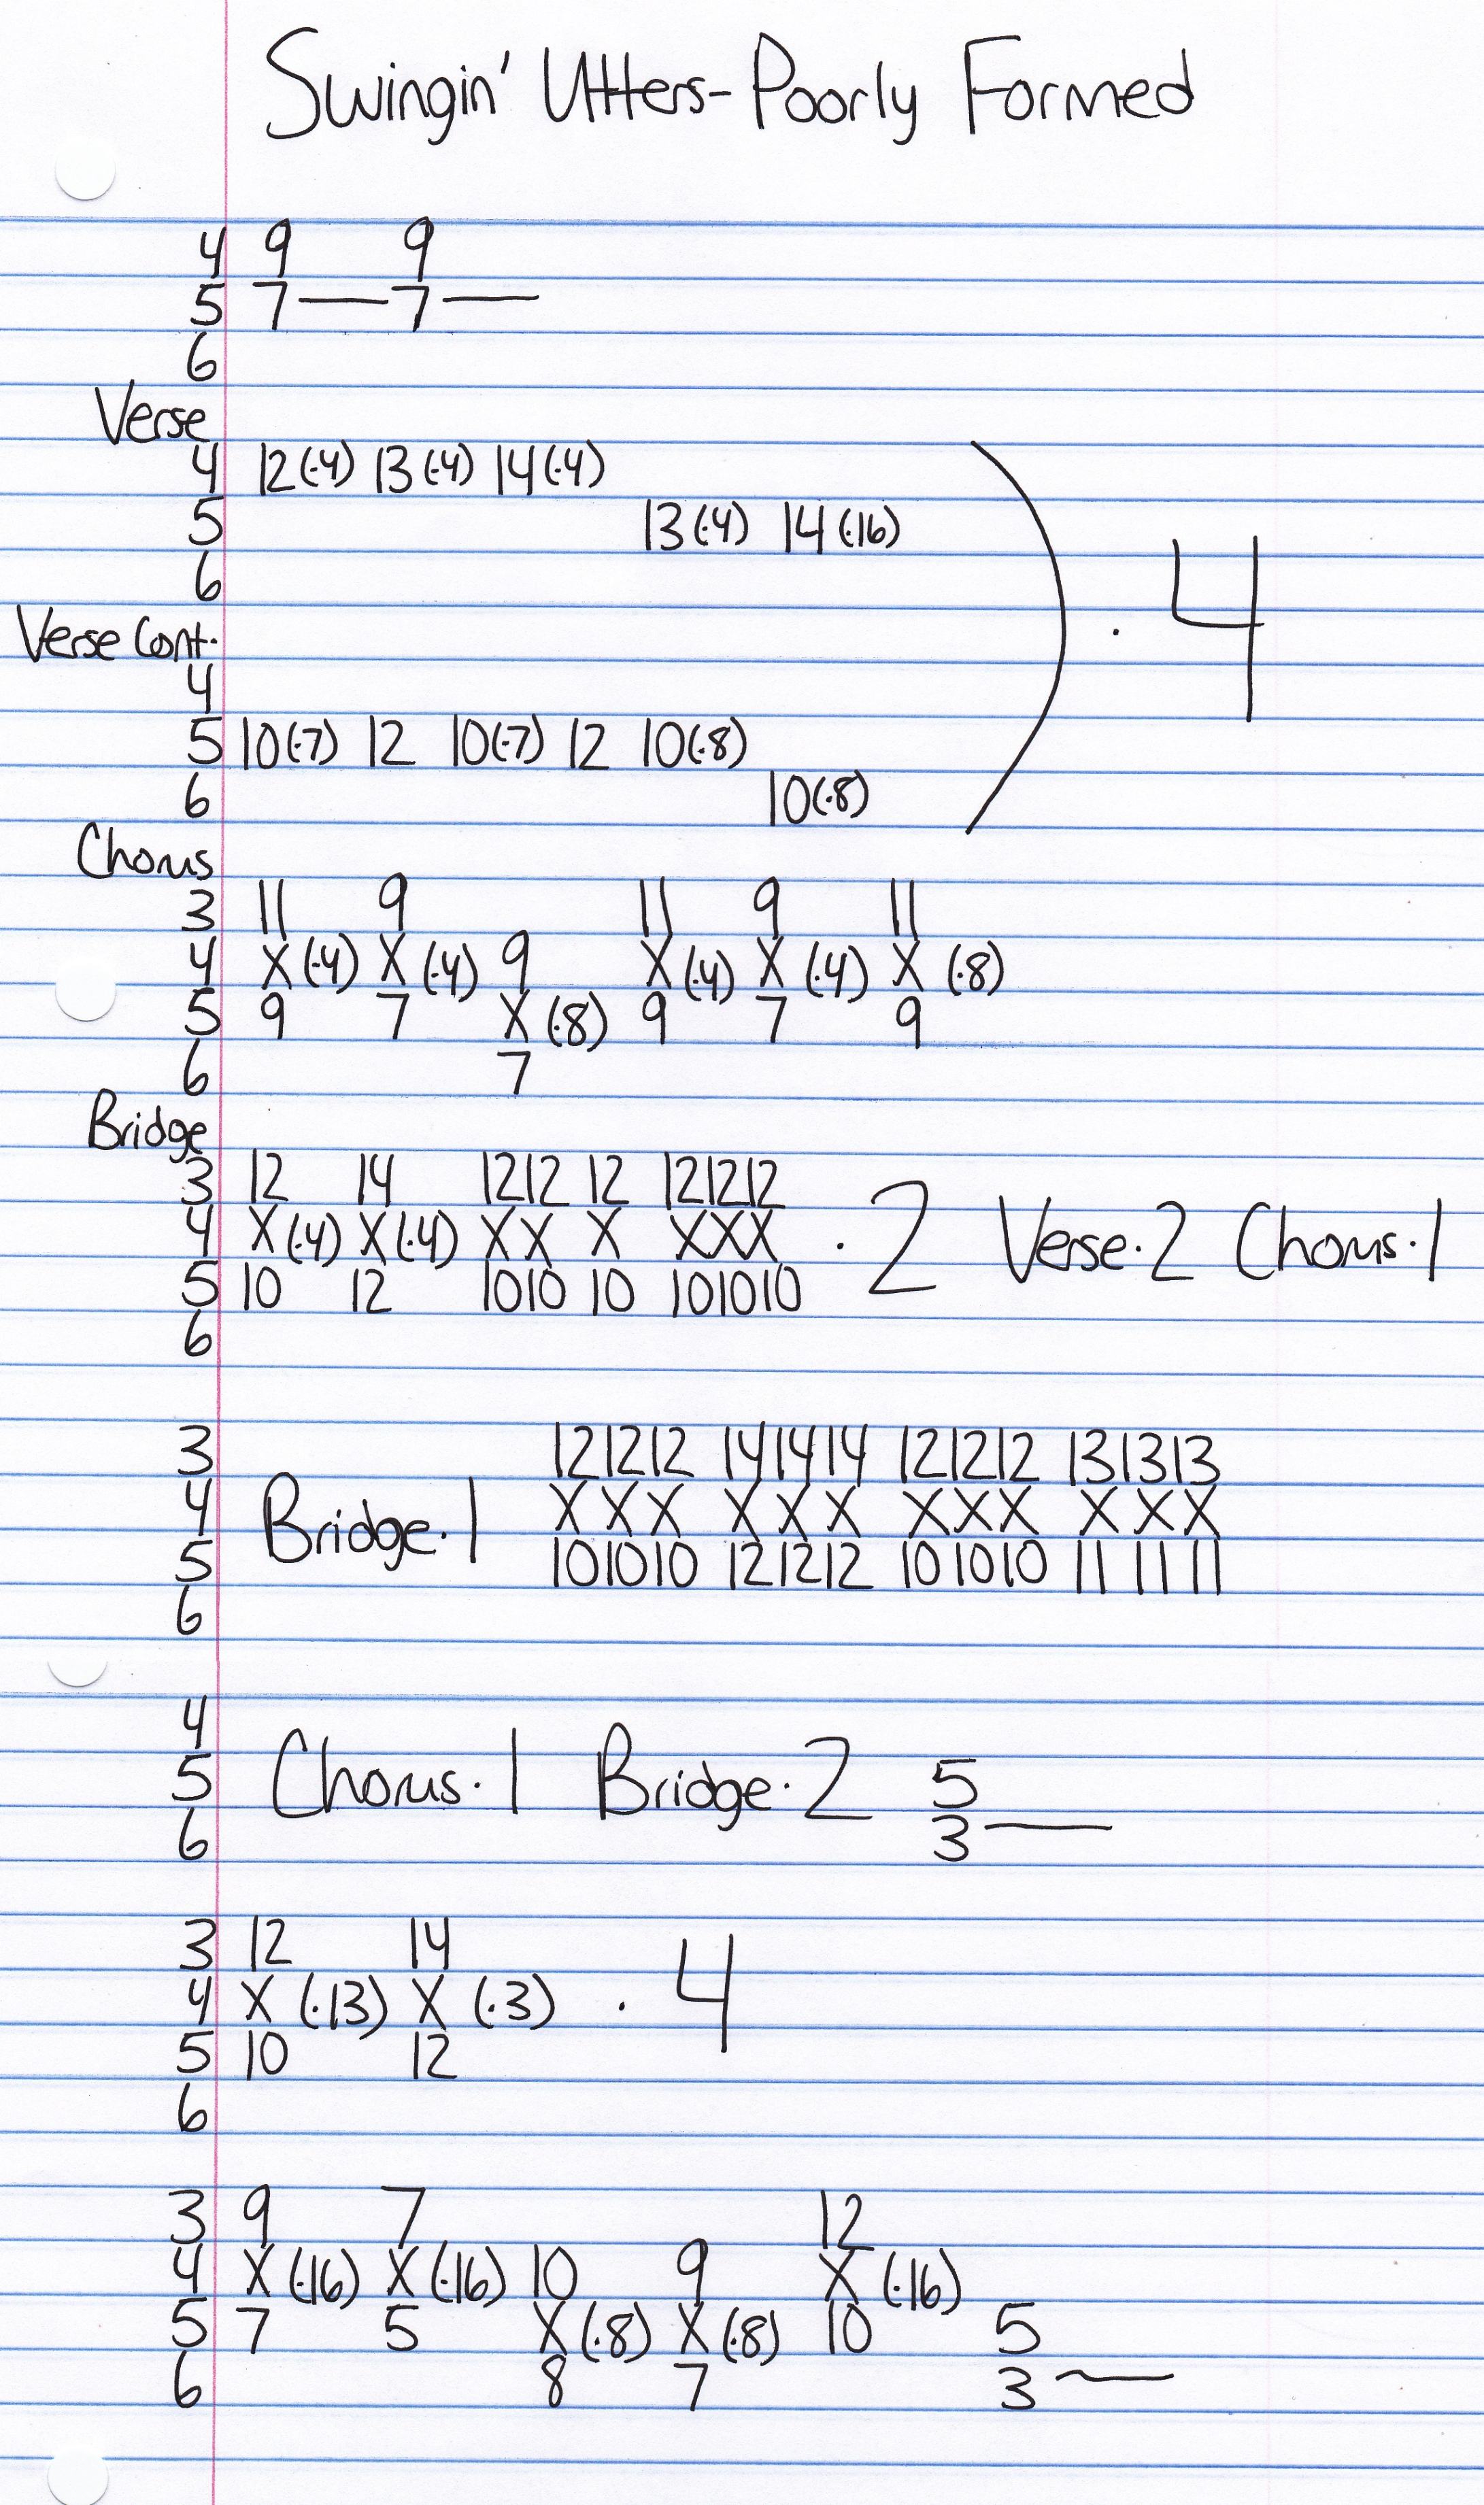 Swingin' Utters-Poorly Formed
4 9 9
5 7 — 7 —
6
Verse
4 12(·4) 13(·4) 14(·4)
5 13(·4) 14(·16)
6
) · 4
Verse Cont.
4
5 10(·7) 12 10(·7) 12 10(·8)
6 10(·8)
Chorus
3 11 9 11 9 11
4 X(·4) X(·4) 9 X(·4) X(·4) X(·8)
5 9 7 X(·8) 9 7 9
6 7
Bridge
3 12 14 12 12 12 12 12 12
4 X(·4) X(·4) X X X X X X · 2 Verse·2 Chorus·1
5 10 12 10 10 10 10 10 10
6
3 12 12 12 14 14 14 12 12 12 13 13 13
4 Bridge·1 X X X X X X X X X X X X
5 10 10 10 12 12 12 10 10 10 11 11 11
6
4
5 Chorus·1 Bridge·2 5
6 3 —
3 12 14
4 X (·13) X (·3) · 4
5 10 12
6
3 9 7 12
4 X(·16) X(·16) 10 9 X(·16)
5 7 5 X(·8) X(·8) 10 5
6 8 7 3 —